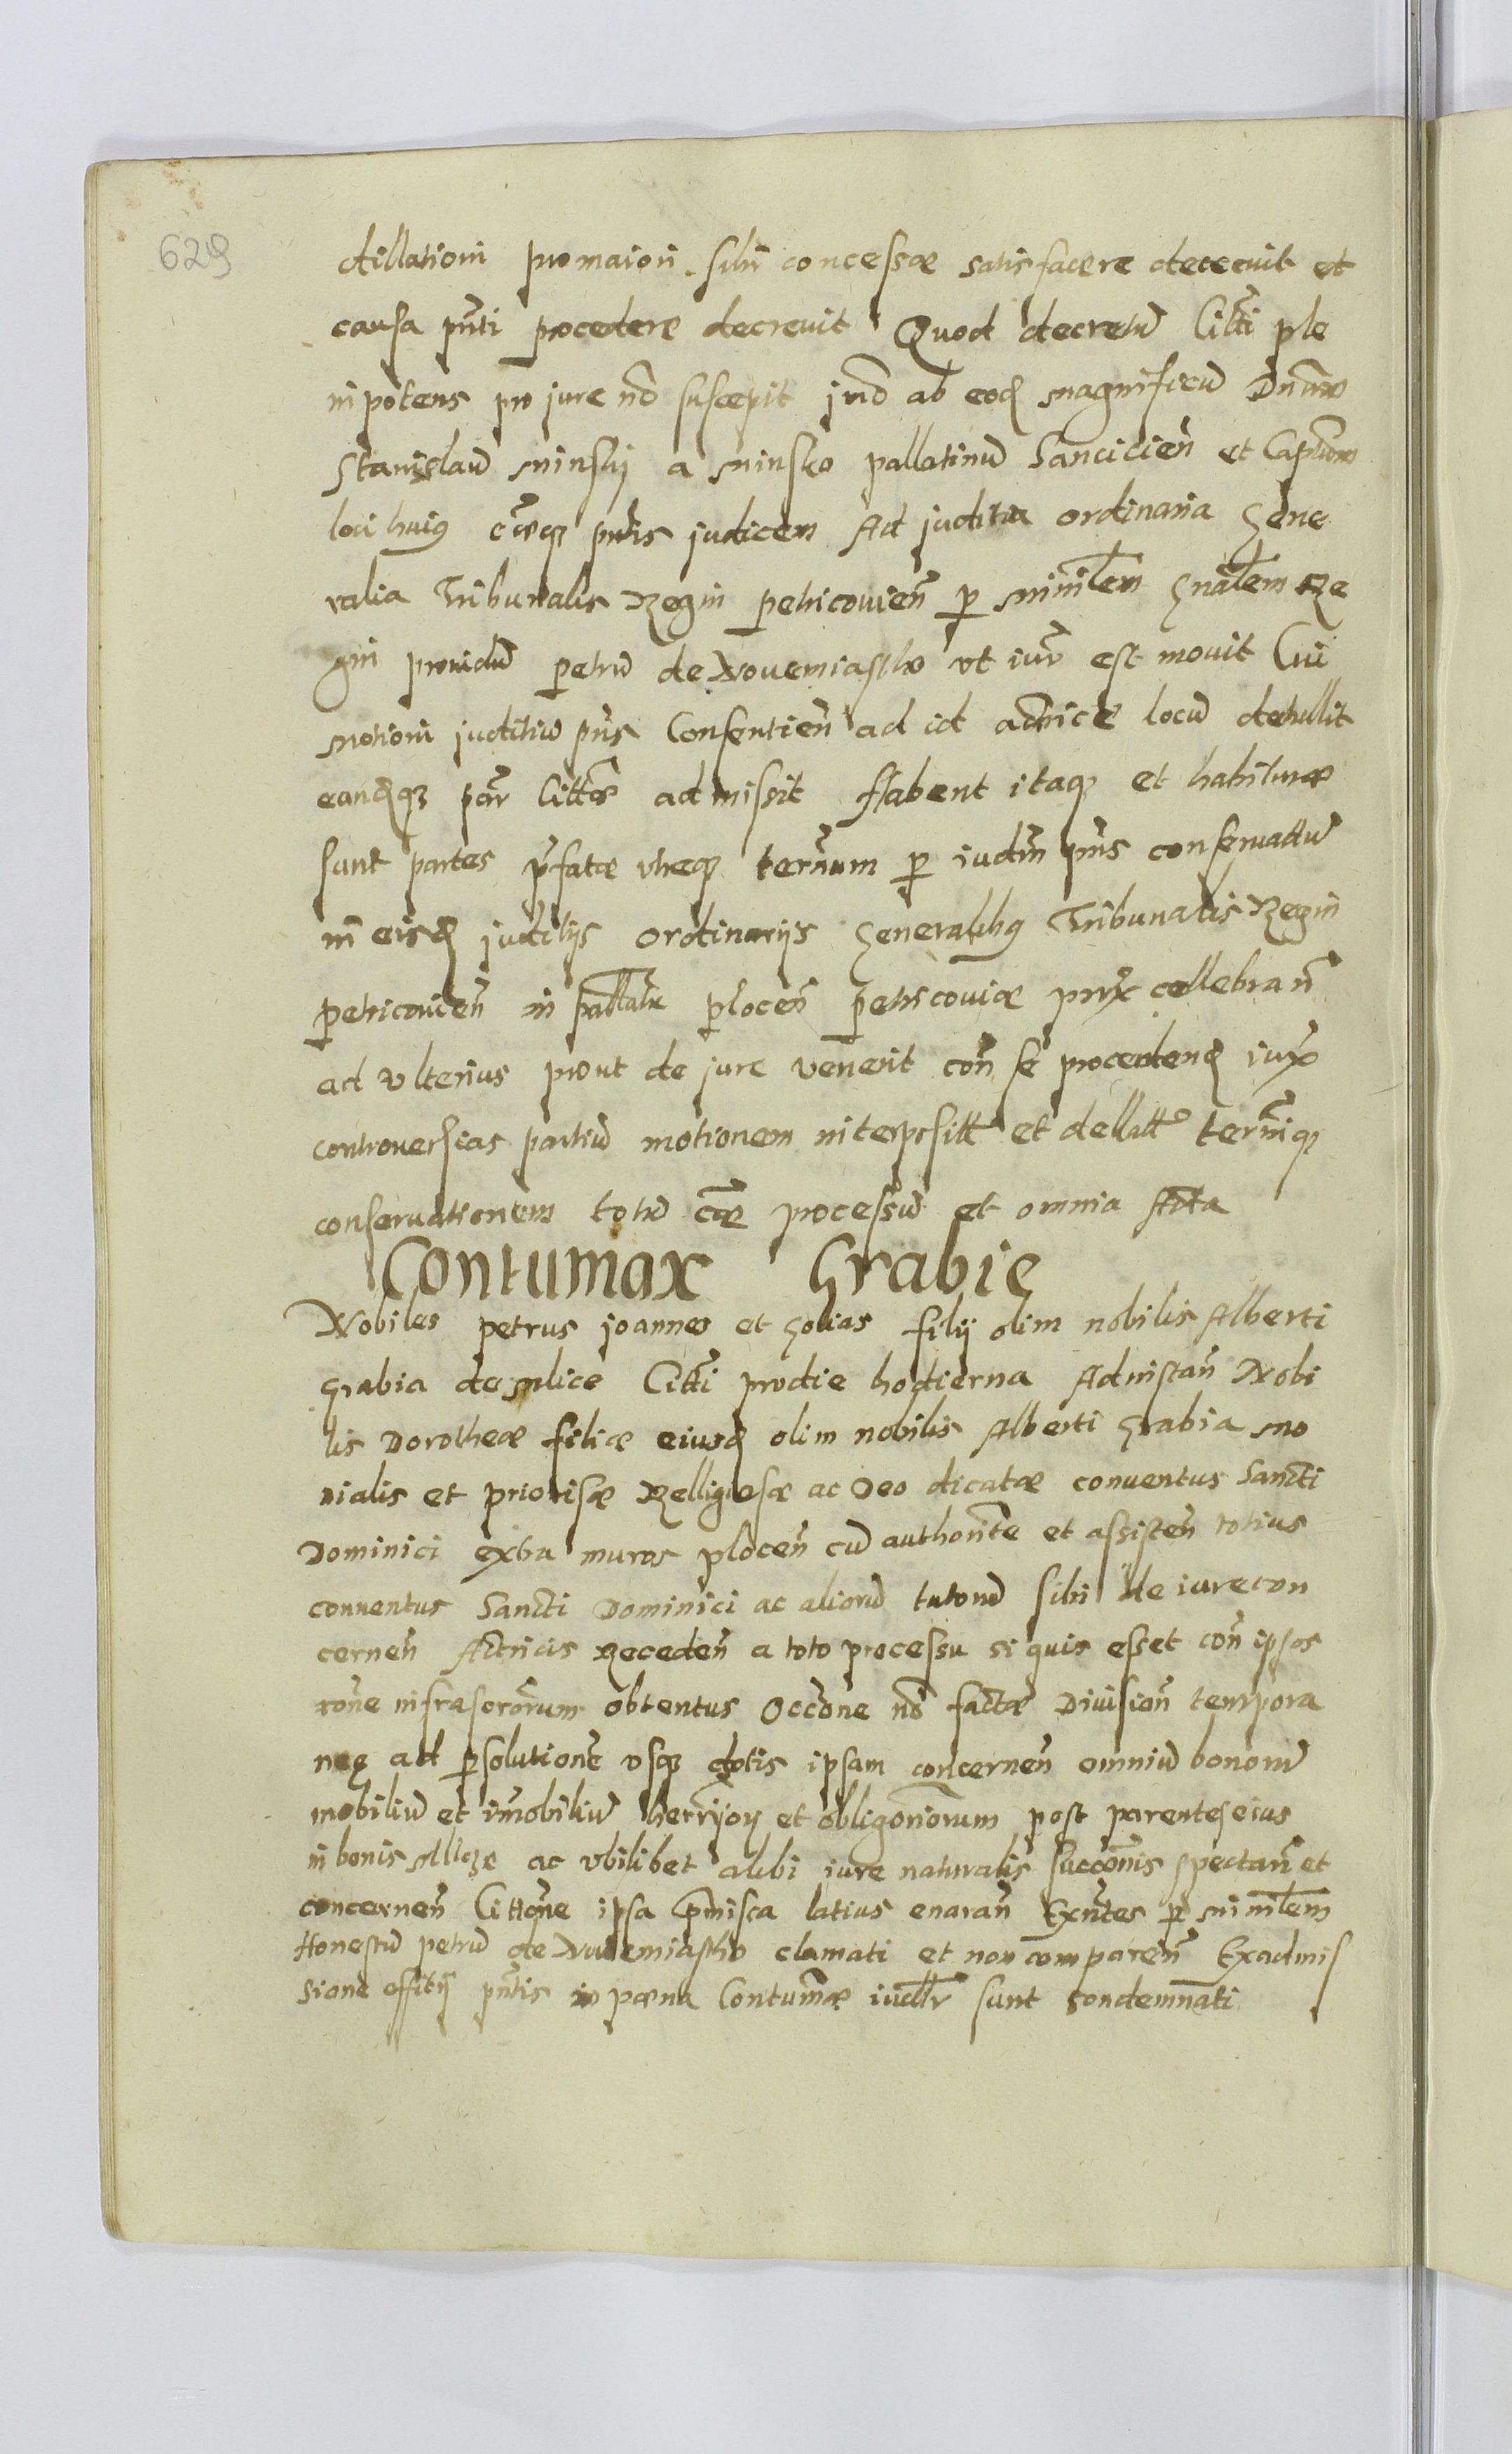 629
dillationi pro maiori sibi concessæ satisfacere decrevit et
causa pnti procedere decrevit Quod decretū Citti ple
nipotens pro jure nō suscepit jmō ab eod magnificū Dnum
Stanislaū Minsky a Minsko pallatinū Lanciciēn et Captneum
loci huiꝰ cæqꝫ pntis judicem Ad juditia ordinaria Gene
ralia Tribunalis Regni petricouieñ p ministlem Gnalem Re
gni prouidū petrū de Nouemiastho vt iur est mouit Cui
motioni juditiū pns Consentieñ ad id actricē locū detullit
eandqꝫ par Cittæ admissit Habent itaqꝫ et habituræ
sunt partes pfatæ vtreqꝫ terñum p iudm pns conseruattū
in eisd juditijs ordinarijs Generalibꝰ Tribunalis Regni
petricouieñ in pallatu ploceñ petricouiæ prox cellebrañ
ad vlterius prout de jure venerit coñ se procedend iux
controuersias partiū motionem interpositt et dellatt termiqꝫ
conseruationem totū cæ processū et omnia Acta
Contumax Grabie
Nobiles petrus joannes et Golias filij olim nobilis Alberti
Grabia de Mlice Citti pro die hodierna Ad instañ Nobi
lis Dorotheæ filiæ eiusd olim nobilis Alberti Grabia mo
nialis et priorisæ Relligiosæ ac Deo dicatæ conuentus Sancti
Dominici extra muros ploceñ cū authorite et assisteñ totius
conuentus Sancti Dominici ac aliorū tutorū sibi de iure con
cerneñ Actricis Recedeñ a toto processu si quis esset coñ ipsos
rõne infrascrorum obtentus Occõne nō factæ Diuisioñ tempora
neæ ad psolutionē vsqꝫ dotis ipsam concerneñ omniū bonorū
mobiliū et imobiliū herrijoꝝ et obligoriorum post parentes eius
in bonis Mlicze ac vbilibet alibi iure naturalis succonis spectañ et
concerneñ Cittone ipsa pmissa latius enarañ Exntes p ministlem
Honestū petrū de Nouemiastho clamati et non compareñ Ex admis
sione offitij pntis in pæna Contumæ iudlr sunt condemnati